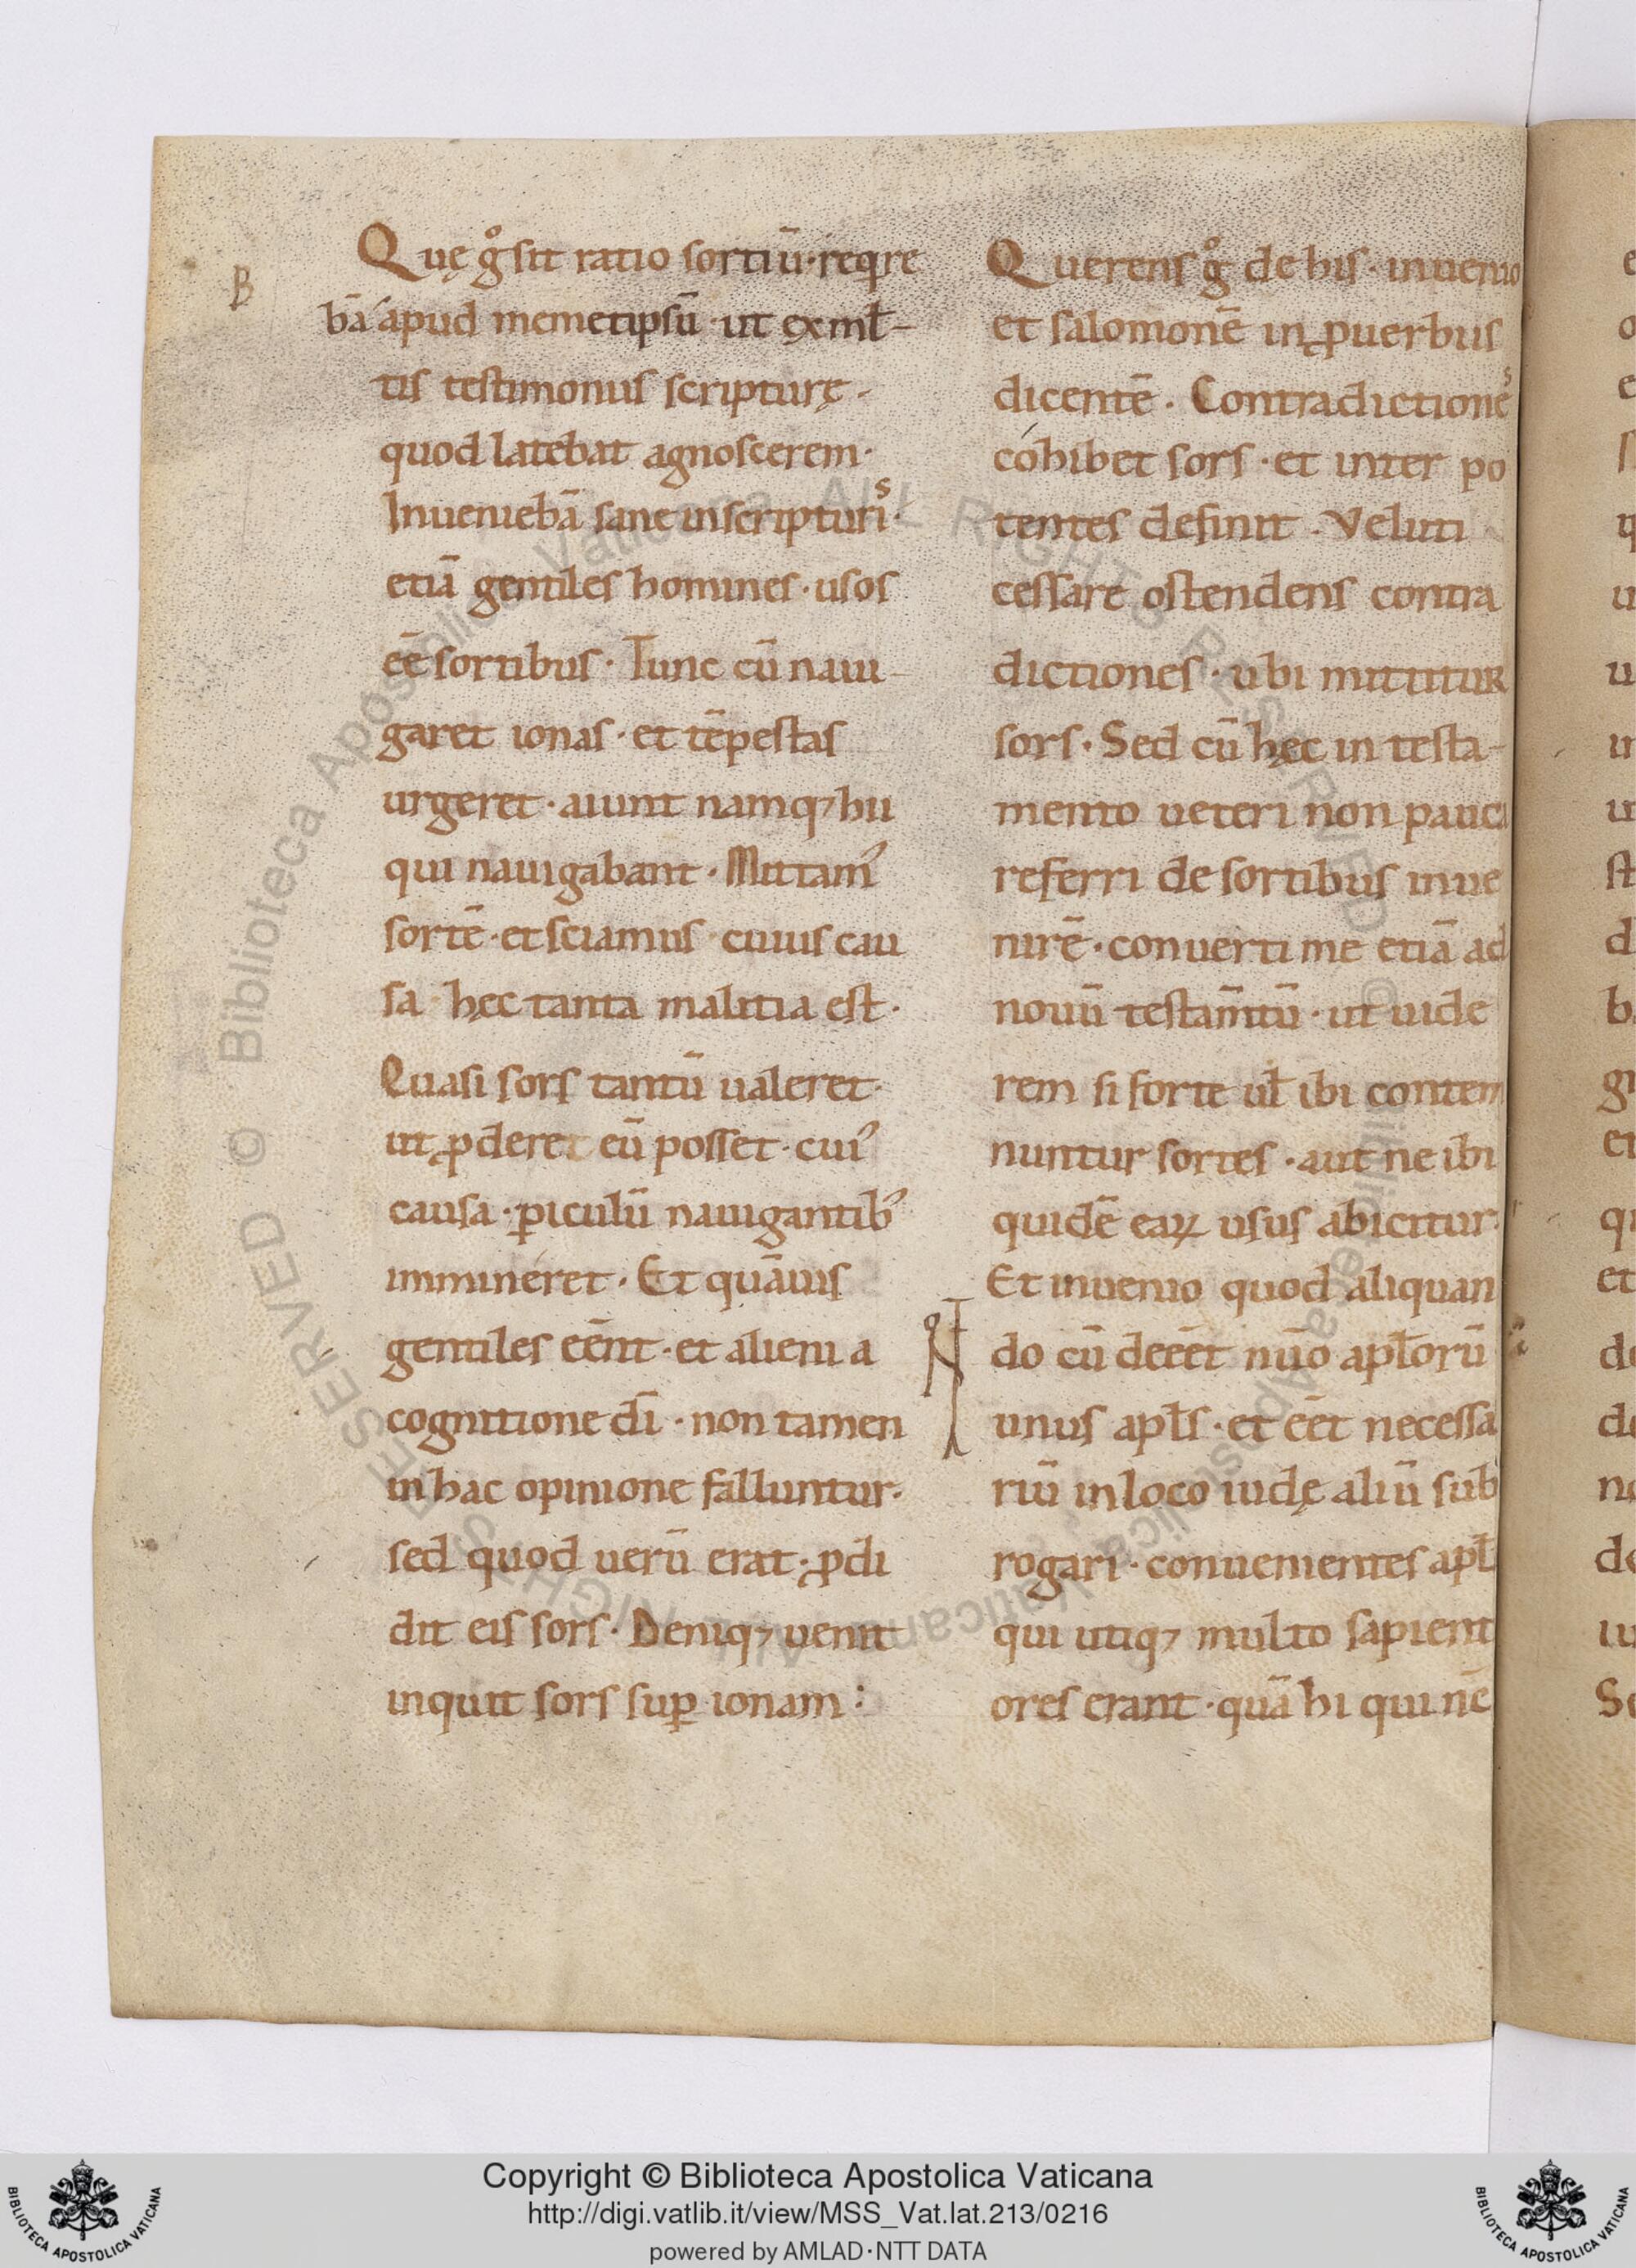 B
Quę gͦ sit ratio sortiū· reqͥre
bā apud memetipsū· ut ex ml̄-
tis testimoniis scripturę·
quod latebat agnoscerem·
Inueniebā sane in scripturiˢ·
etiā gentiles homines· usos
eē sortibus· Tunc cū naui-
garet ionas· et tēpestas
urgeret· aiunt namq; hii
qui nauigabant· Mittam᾽
sortē· et sciamus cuius cau
sa hęc tanta malitia est·
Quasi sors tantū ualeret·
ut ꝓderet eū posset· cui᾽
causa· ꝑiculū nauigantib᾽
immineret· Et quāuis
gentiles eēnt· et alieni a
cognitione dī· non tamen
in hac opinione falluntur·
sed quod uerū erat· ꝓdi
dit eis sors· Deniq; uenit
inquit sors suꝑ ionam :
Querens gͦ de his· inuenio
et salomonē in ꝓuerbiis
dicentē· Contradictioneˢ
cohibet sors· et inter po
tentes definit· Veluti
cessare ostendens contra
dictiones· ubi mittitur
sors· Sed cū hęc in testa-
mento ueteri non pauca
referri de sortibus inue
nirē· conuerti me etiā ad
nouū testam̄tū· ut uide
rem si forte ul̄ ibi contem
nuntur sortes· aut ne ibi
quidē eaꝝ usus abicitur·
Et inuenio quod aliquan
do cū deeēt nūo apl̄orū
unus apl̄s· et eēt necessa
riū in loco iudę aliū sub
rogari· conuenientes apl̄i
qui utiq; multo sapienti
ores erant· quā hi qui nē
Copyright © Biblioteca Apostolica Vaticana
http://digi.vatlib.it/view/MSS_Vat.lat.213/0216
powered by AMLAD·NTT DATA
BIBLIOTECA APOSTOLICA VATICANA
BIBLIOTECA APOSTOLICA VATICANA